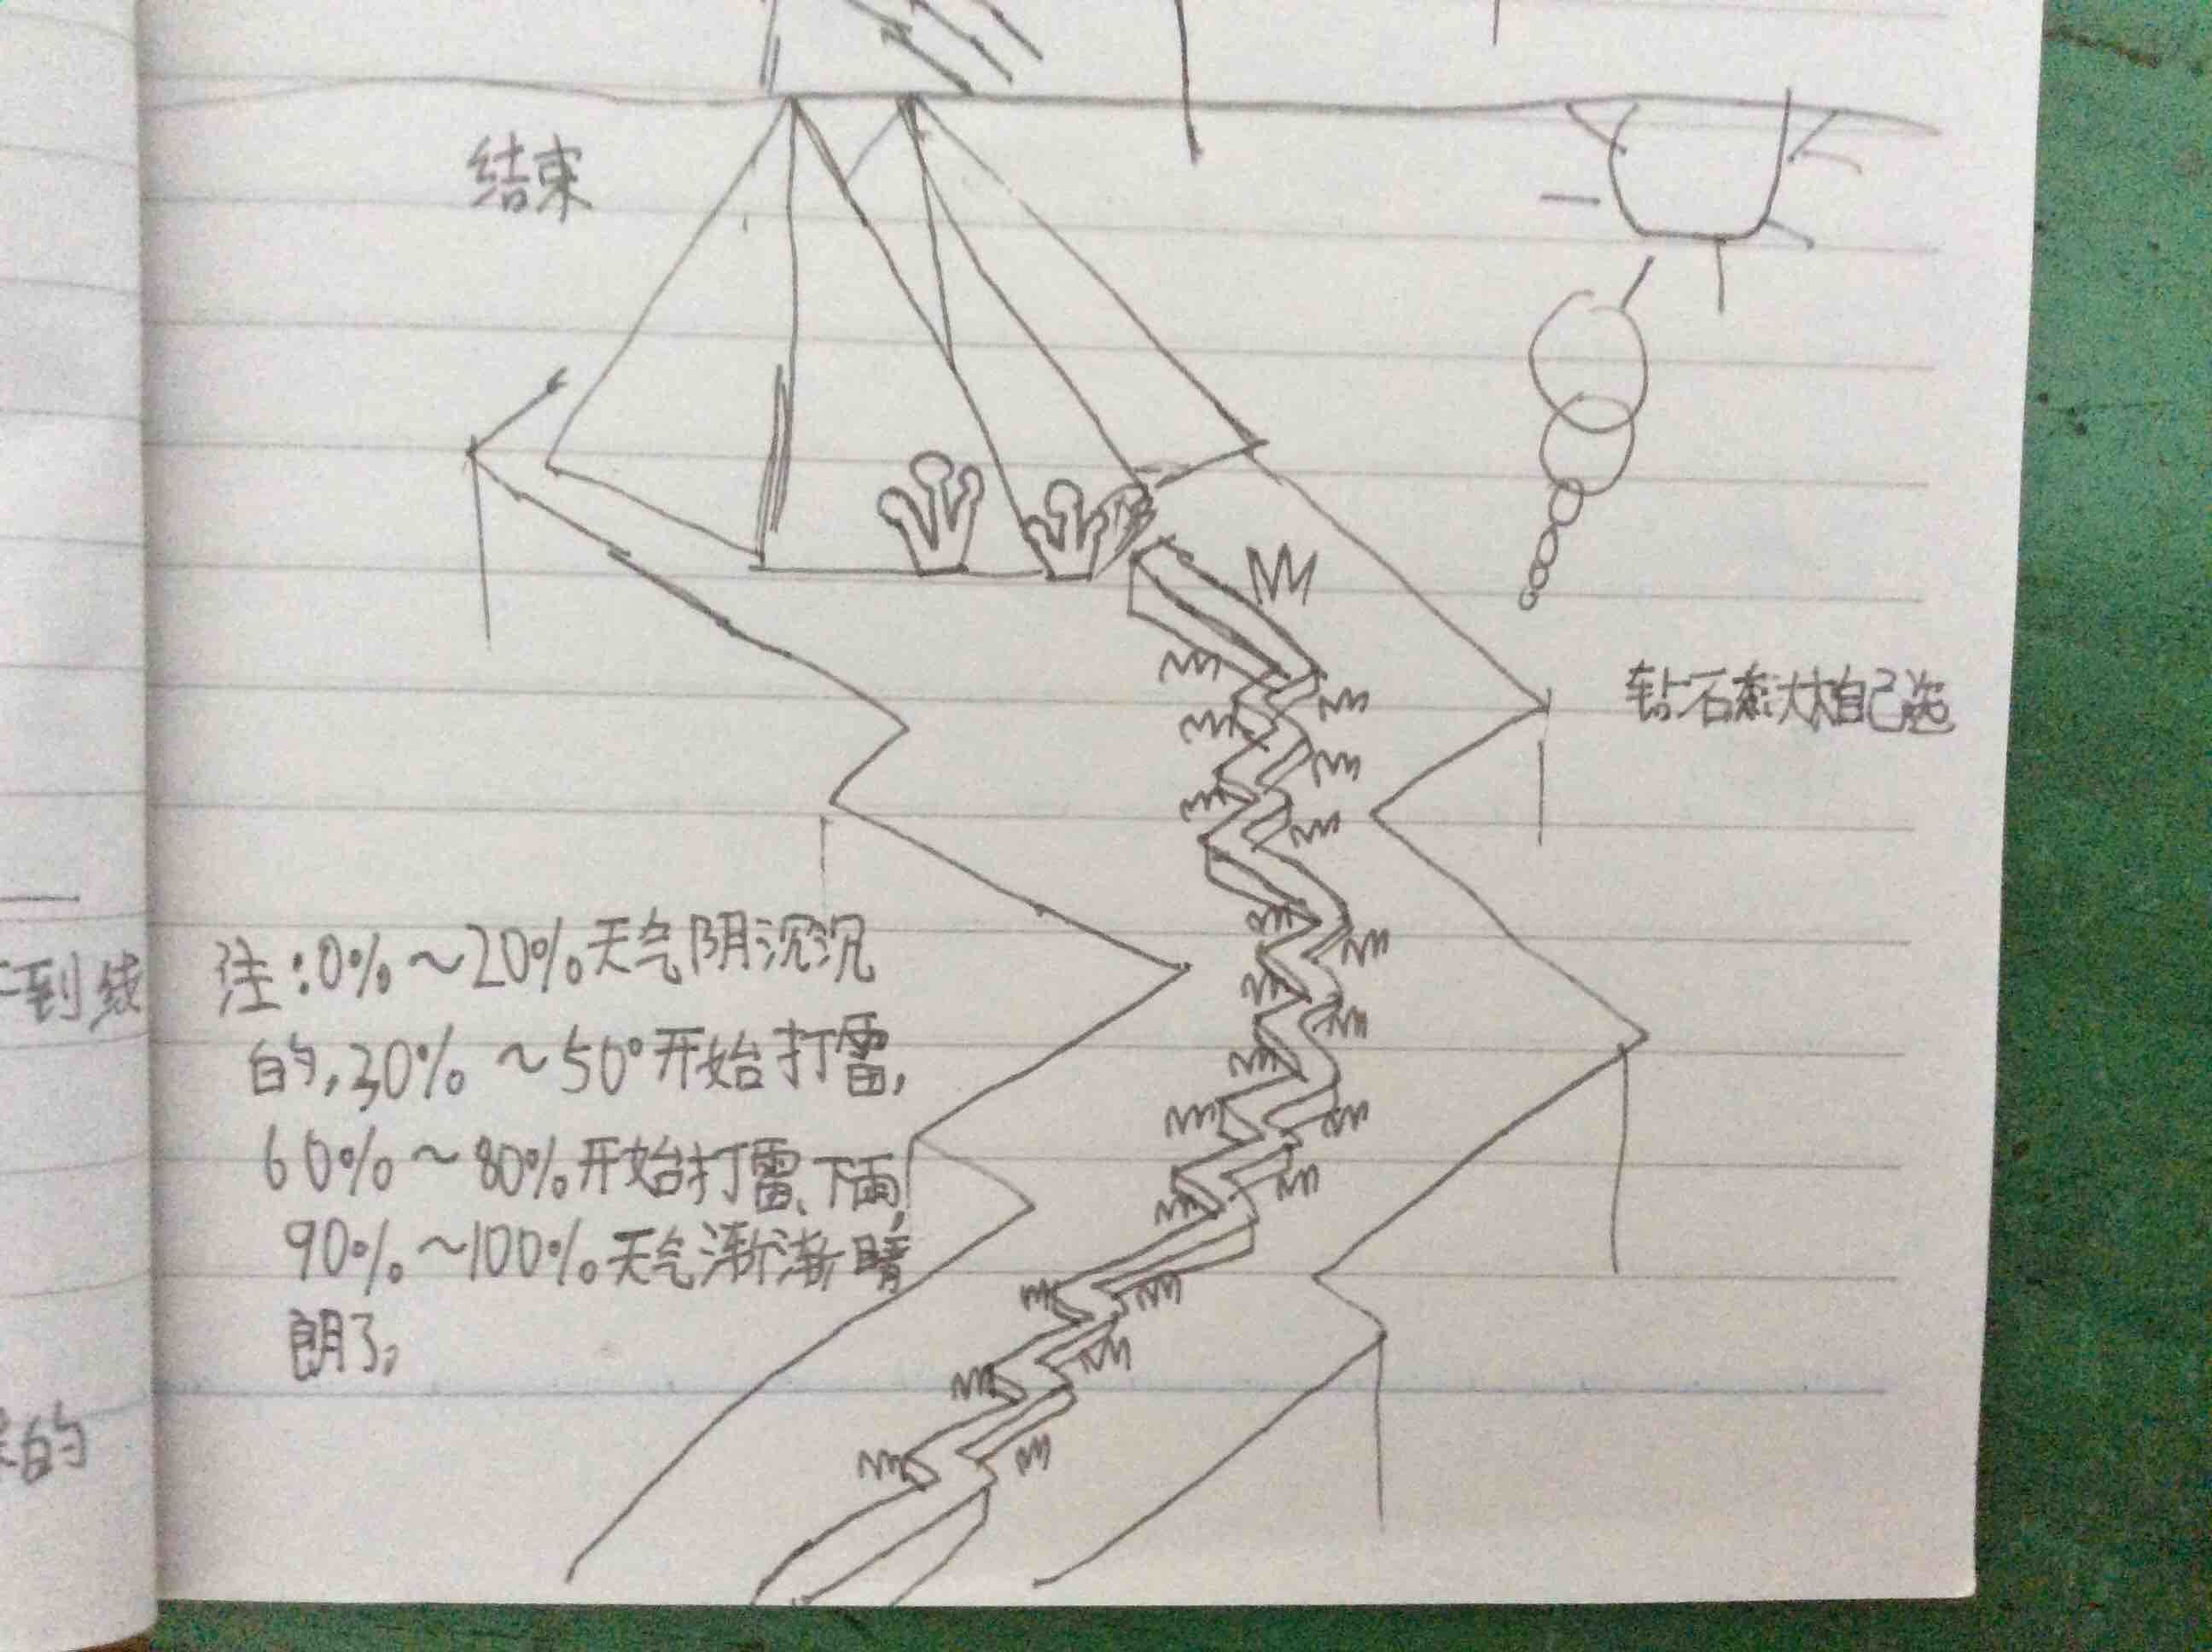 结束
钻石太大自己选
注:0%~20%天气阴沉沉
的,30%~50°开始打雷,
60%~80%开始打雷、下雨,
90%~100%天气渐渐晴
朗了。
到线
的